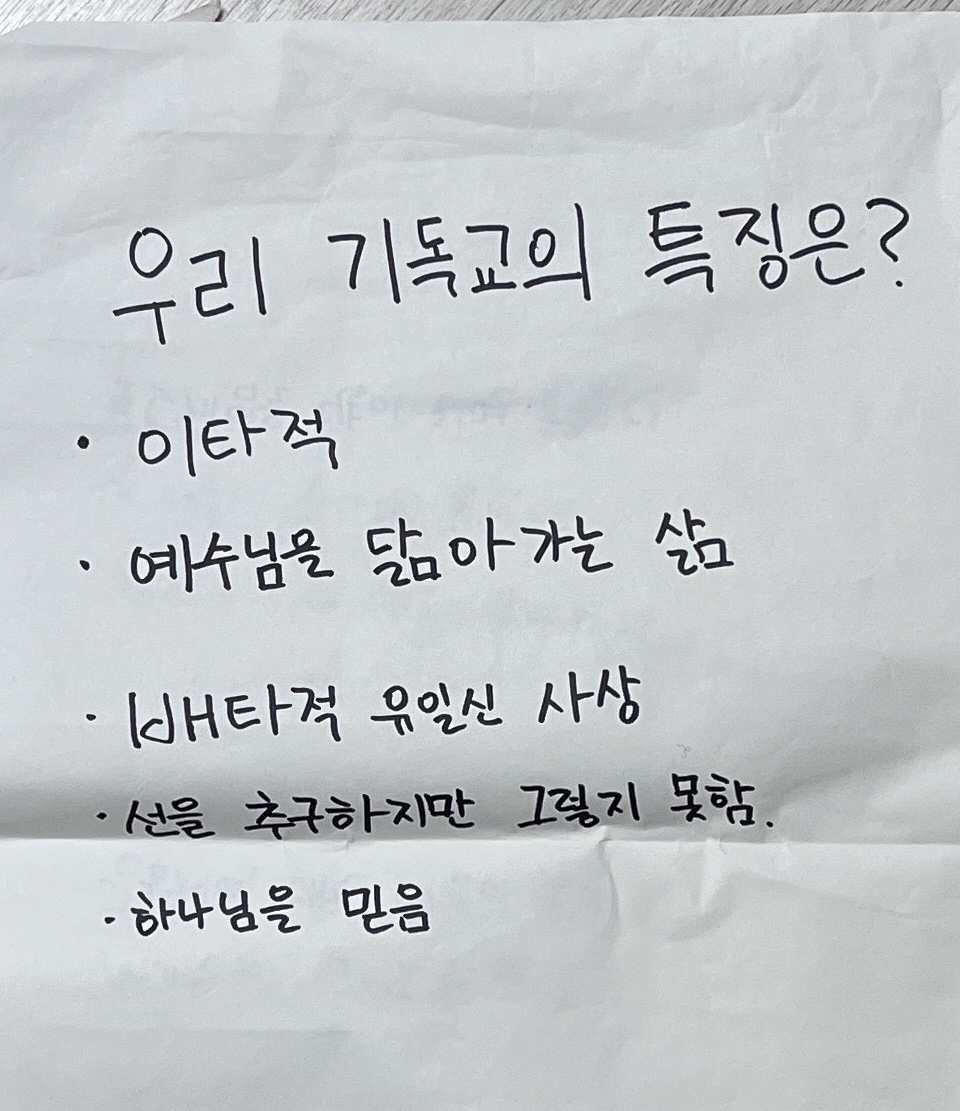 우리 기독교의 특징은?
· 이타적
· 예수님을 닮아가는 삶
· 배타적 유일신 사상
· 선을 추구하지만 그렇지 못함.
· 하나님을 믿음